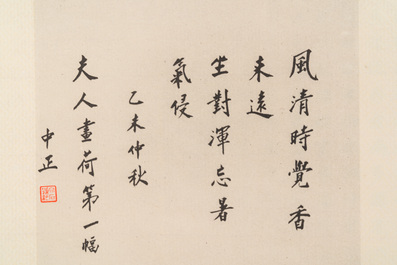 風清時覺香
來遠
坐對渾忘暑
氣侵
乙未仲秋
夫人畫荷第一幅
中正